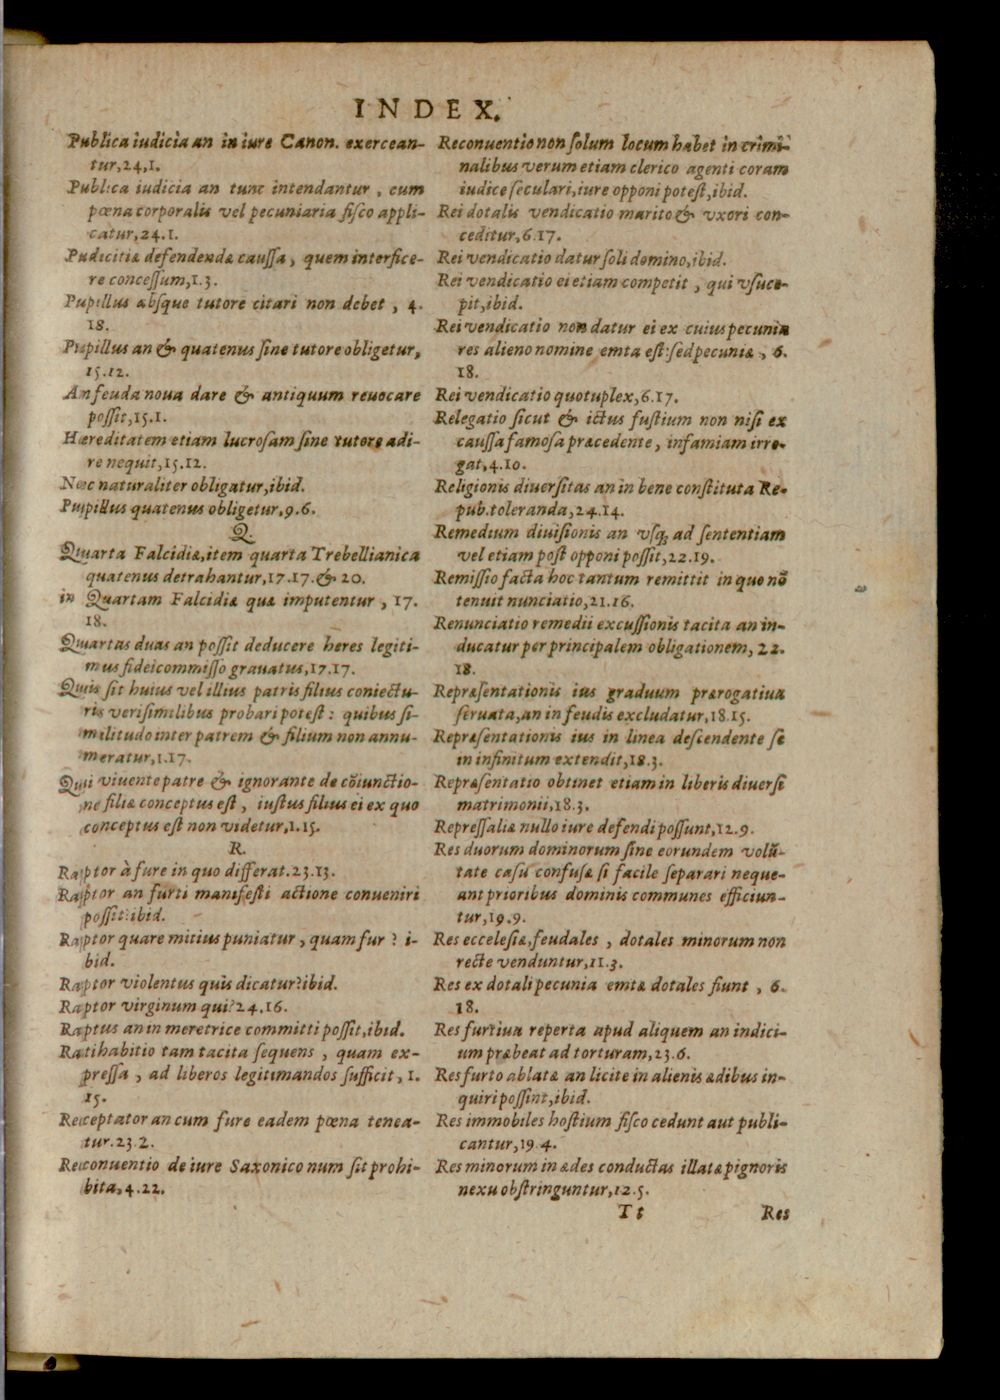 INDEX.
Publica iudicia an in iure Canon. exercean-
tur,24,1.
Publica iudicia an tunc intendantur, cum
pœna corporalis vel pecuniaria fisco appli-
catur,24.1.
Pudicitiæ defendendæ caussa, quem interfice-
re concessum,1.3.
Pupillus absque tutore citari non debet, 4.
18.
Pupillus an & quatenus sine tutore obligetur,
15.12.
An feuda noua dare & antiquum reuocare
possit,15.1.
Hæreditatem etiam lucrosam sine tutore adi-
re nequit,15.12.
Nec naturaliter obligatur,ibid.
Pupillus quatenus obligetur,9.6.
Q.
Quarta Falcidiæ,item quarta Trebellianica
quatenus detrahantur,17.17.& 20.
in Quartam Falcidiæ quæ imputentur, 17.
18.
Quartas duas an possit deducere heres legiti-
mus fideicommisso grauatus,17.17.
Quis sit huius vel illius patris filius coniectu-
ris verisimilibus probari potest: quibus si-
militudo inter patrem & filium non annu-
meratur,1.17.
Qui viuente patre & ignorante de cõiunctio-
ne filiæ conceptus est, iustus filius ei ex quo
conceptus est non videtur,1.15.
R.
Raptor à fure in quo differat.23.13.
Raptor an furti manifesti actione conueniri
possit:ibid.
Raptor quare mitius puniatur, quam fur? i-
bid.
Raptor violentus quis dicatur?ibid.
Raptor virginum qui?24.16.
Raptus an in meretrice committi possit,ibid.
Ratihabitio tam tacita sequens, quam ex-
pressa, ad liberos legitimandos sufficit, 1.
15.
Receptator an cum fure eadem pœna tenea-
tur.23.2.
Reconuentio de iure Saxonico num sit prohi-
bita,4.22.
Reconuentio non solum locum habet in crimi-
nalibus verum etiam clerico agenti coram
iudice seculari,iure opponi potest,ibid.
Rei dotalis vendicatio marito & vxori con-
ceditur,6.17.
Rei vendicatio datur soli domino,ibid.
Rei vendicatio ei etiam competit, qui vsuce-
pit,ibid.
Rei vendicatio non datur ei ex cuius pecunia
res alieno nomine emta est:sed pecuniæ, 6.
18.
Rei vendicatio quotuplex,6.17.
Relegatio sicut & ictus fustium non nisi ex
caussa famosa præcedente, infamiam irro-
gat,4.10.
Religionis diuersitas an in bene constituta Re-
pub.toleranda,24.14.
Remedium diuisionis an vsq; ad sententiam
vel etiam post opponi possit,22.19.
Remissio facta hoc tantum remittit in quo nõ
tenuit nunciatio,21.16.
Renunciatio remedii excussionis tacita an in-
ducatur per principalem obligationem, 22.
18.
Repræsentationis ius graduum prærogatiua
seruata,an in feudis excludatur,18.15.
Repræsentationis ius in linea descendente se
in infinitum extendit,18.3.
Repræsentatio obtinet etiam in liberis diuersi
matrimonii,18.3.
Repressaliæ nullo iure defendi possunt,12.9.
Res duorum dominorum sine eorundem volũ-
tate casu confusæ si facile separari neque-
ant prioribus dominis communes efficiun-
tur,19.9.
Res ecclesiæ,feudales, dotales minorum non
recte venduntur,11.3.
Res ex dotali pecunia emtæ dotales fiunt, 6.
18.
Res furtiua reperta apud aliquem an indici-
um præbeat ad torturam,23.6.
Res furto ablatæ an licite in alienis ædibus in-
quiri possint,ibid.
Res immobiles hostium fisco cedunt aut publi-
cantur,19.4.
Res minorum in ædes conductas illatæ pignoris
nexu obstringuntur,12.5.
Tt
Res